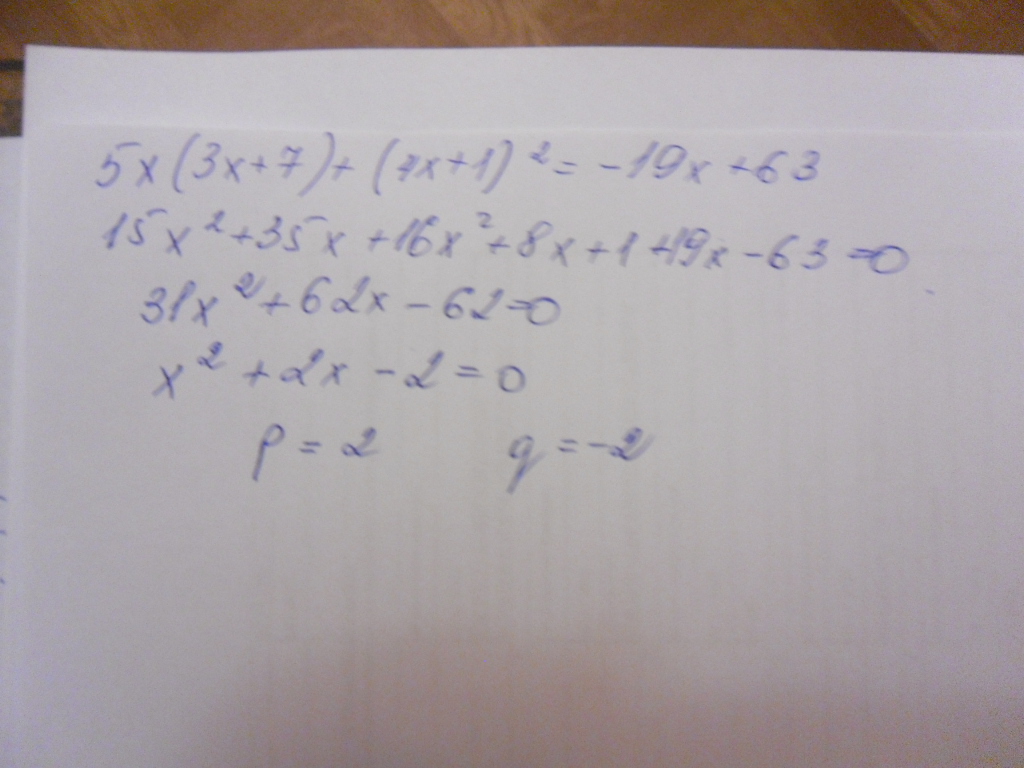 5x(3x+7)+(4x+1)²=-19x+63
15x²+35x+16x²+8x+1+19x-63=0
31x²+62x-62=0
x²+2x-2=0
p=2 q=-2